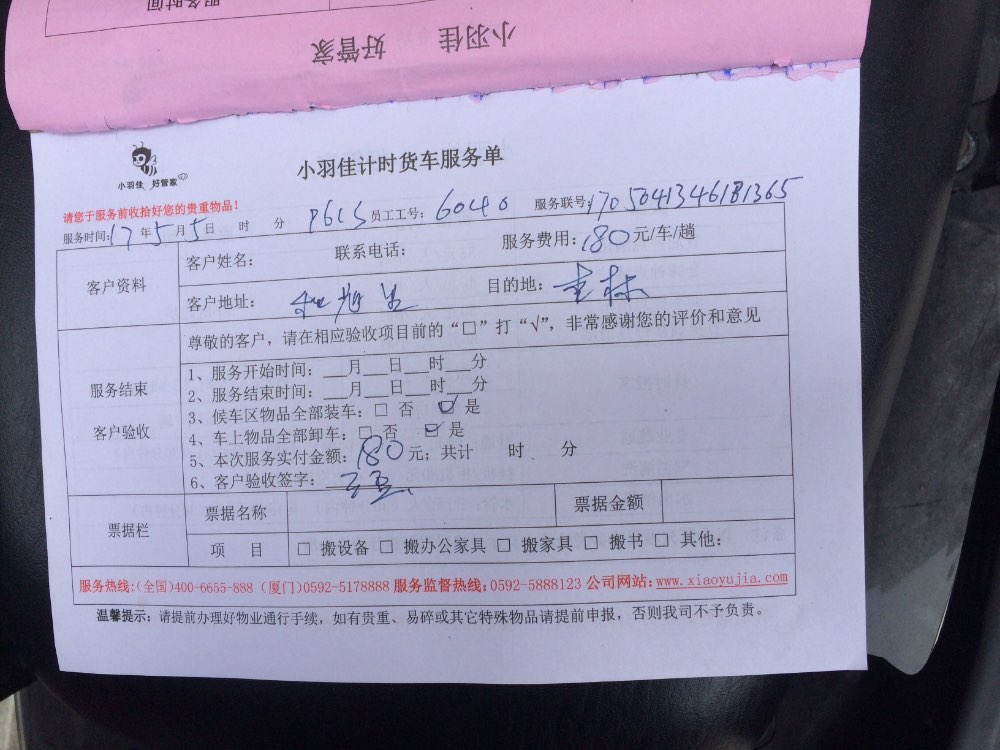 服务时间
小羽佳 好管家
小羽佳 好管家
小羽佳计时货车服务单
请您于服务前收拾好您的贵重物品！
服务时间:17年5月5日 时 分 员工工号: 6040 服务联号:
客户资料
客户姓名: 联系电话: 服务费用:180元/车/趟
客户地址: 目的地:
服务结束 客户验收
尊敬的客户，请在相应验收项目前的“□”打“√”，非常感谢您的评价和意见
1、服务开始时间：___月___日___时___分
2、服务结束时间：___月___日___时___分
3、候车区物品全部装车：□ 否 ☑ 是
4、车上物品全部卸车：□ 否 ☑ 是
5、本次服务实付金额：180元；共计 时 分
6、客户验收签字：
票据栏
票据名称 票据金额
项 目 □ 搬设备 □ 搬办公家具 □ 搬家具 □ 搬书 □ 其他：
服务热线:(全国)400-6655-888 (厦门)0592-5178888 服务监督热线:0592-5888123 公司网站:www.xiaoyujia.com
温馨提示：请提前办理好物业通行手续，如有贵重、易碎或其它特殊物品请提前申报，否则我司不予负责。